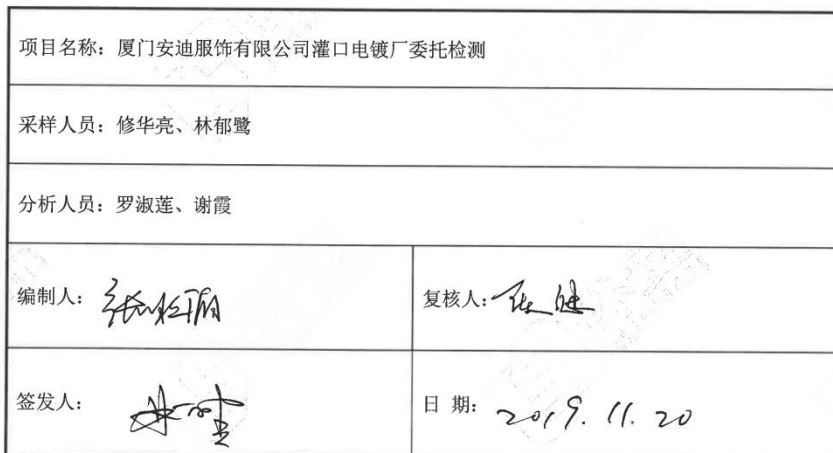 项目名称：厦门安迪服饰有限公司灌口电镀厂委托检测
采样人员：修华亮、林郁鹭
分析人员：罗淑莲、谢霞
编制人：
复核人：
签发人：
日 期：2019.11.20